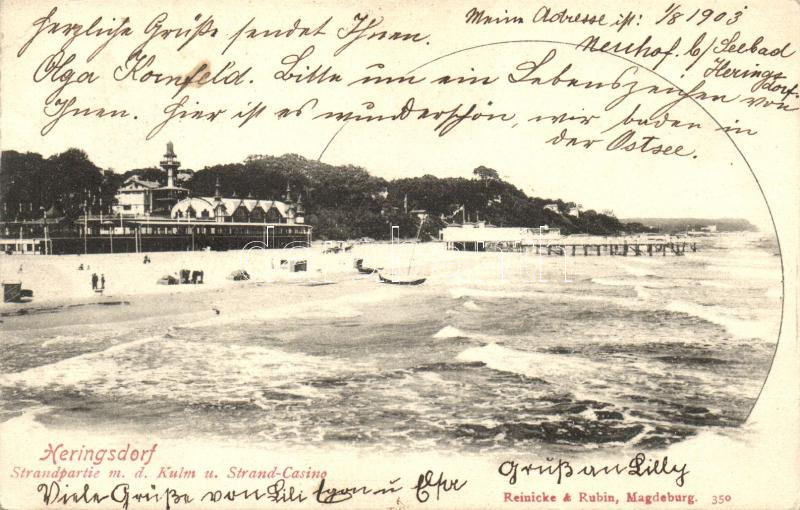 Meine Adresse ist: 1/8 1903
Neuhof b/ Seebad
Herings-
dorf.
Herzliche Grüße sendet Ihnen.
Olga Kornfeld. Bitte um ein Lebenszeichen von
Ihnen. Hier ist es wunderschön, wir baden in
der Ostsee.
darabanth.com
Heringsdorf
Strandpartie m. d. Kulm u. Strand-Casino
Gruß an Lilly
Viele Grüße von Lili Egon u Elsa
Reinicke & Rubin, Magdeburg. 350